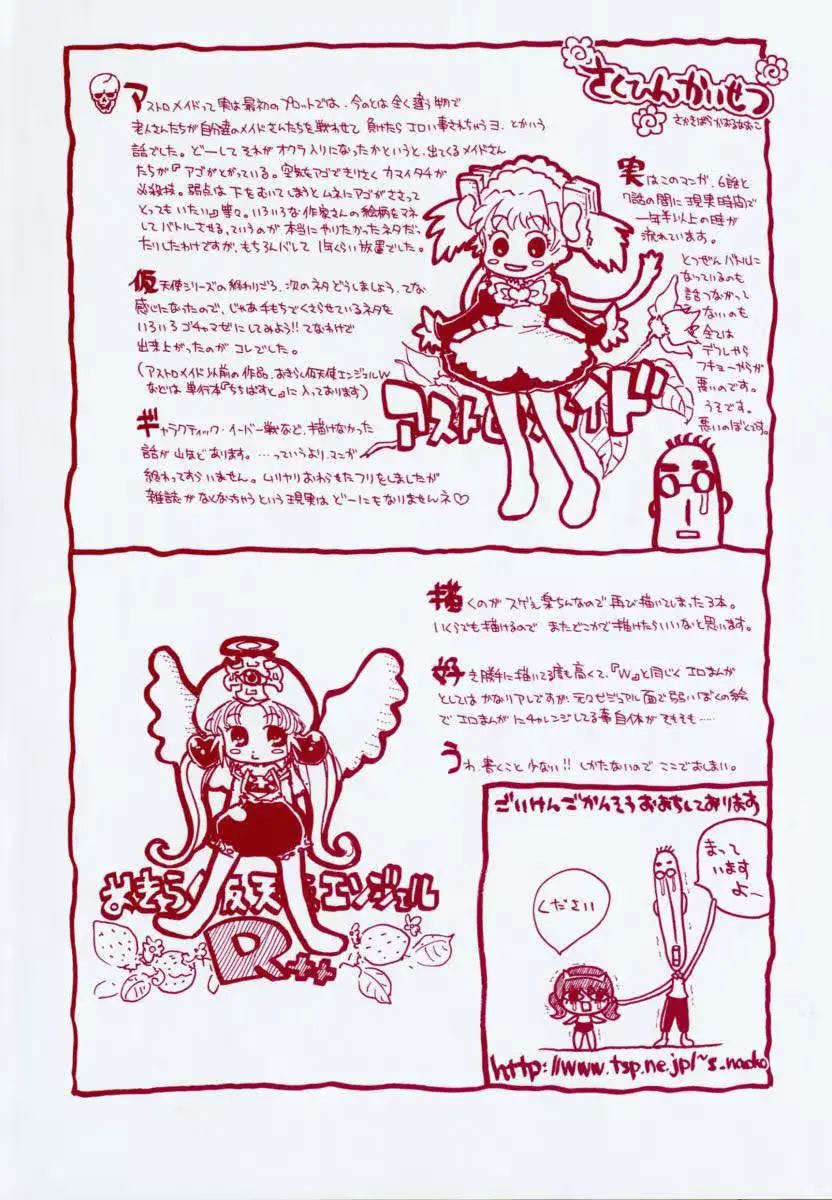 さくひんかいせつ
さかきばらかおるなおこ
アストロメイドって実は最初のプロットでは、今のとは全く違う物で
老人さんたちが自分達のメイドさんたちを戦わせて 負けたらエロい事されちゃうヨ、とかいう
話でした。どーしてそれがオクラ入りになったかというと、出てくるメイドさん
たちが『アゴがとがっている。空気をアゴできりさく カマイタチが
必殺技。弱点は下をむいてしまうと ムネにアゴがささって
とってもいたい』等々。いろいろな作家さんの絵柄をマネ
してバトルさせる、ていうのが本当にやりたかったネタだっ
たりしたわけですが、もちろんバレして 1年くらい放置でした。
仮天使シリーズの終わりごろ、次のネタどうしましょう、てな
感じになったので、じゃあ手もちでくさらせているネタを
いろいろゴチャマゼにしてみよう!! てなわけで
出来上がったのが コレでした。
(アストロメイド以前の作品、あきらし仮天使エンジェルW
などは 単行本『ちちばすと』に入っております)
ギャラクティック・イーバー戦など、描けなかった
話が山ほどあります。…っていうより、マンガ
終わってすらいません。ムリヤリおわらせたフリをしましたが
雑誌がなくなっちゃうという現実は どーにもなりませんネ♡
実はこのマンガ、6話と
7話の間に 現実時間で
一年半以上の時が
流れています。
とつぜんバトルに
なっているのも
話つながって
ないのも
全ては
デフレやら
フキョーからが
悪いのです。
うそです。
悪いのぼくです。
アストロメイド
描くのが スゲぇ楽ちんなので 再び描いてしまった3本。
いくらでも描けるので またどこかで描けたらいいなと思います。
好き勝手に描いてる度も高くて、『W』と同じく エロまんが
としては かなりアレですが、元々ビジュアル面で弱いぼくの絵
で エロまんがにチャレンジしてる事自体がそもそも……
うわ、書くこと少ない!! しかたないので ここでおしまい。
仮天使エンジェル
R++
ごいけんごかんそうおまちしております
まって
います
よー
ください
http://www.tsp.ne.jp/~s_naoko